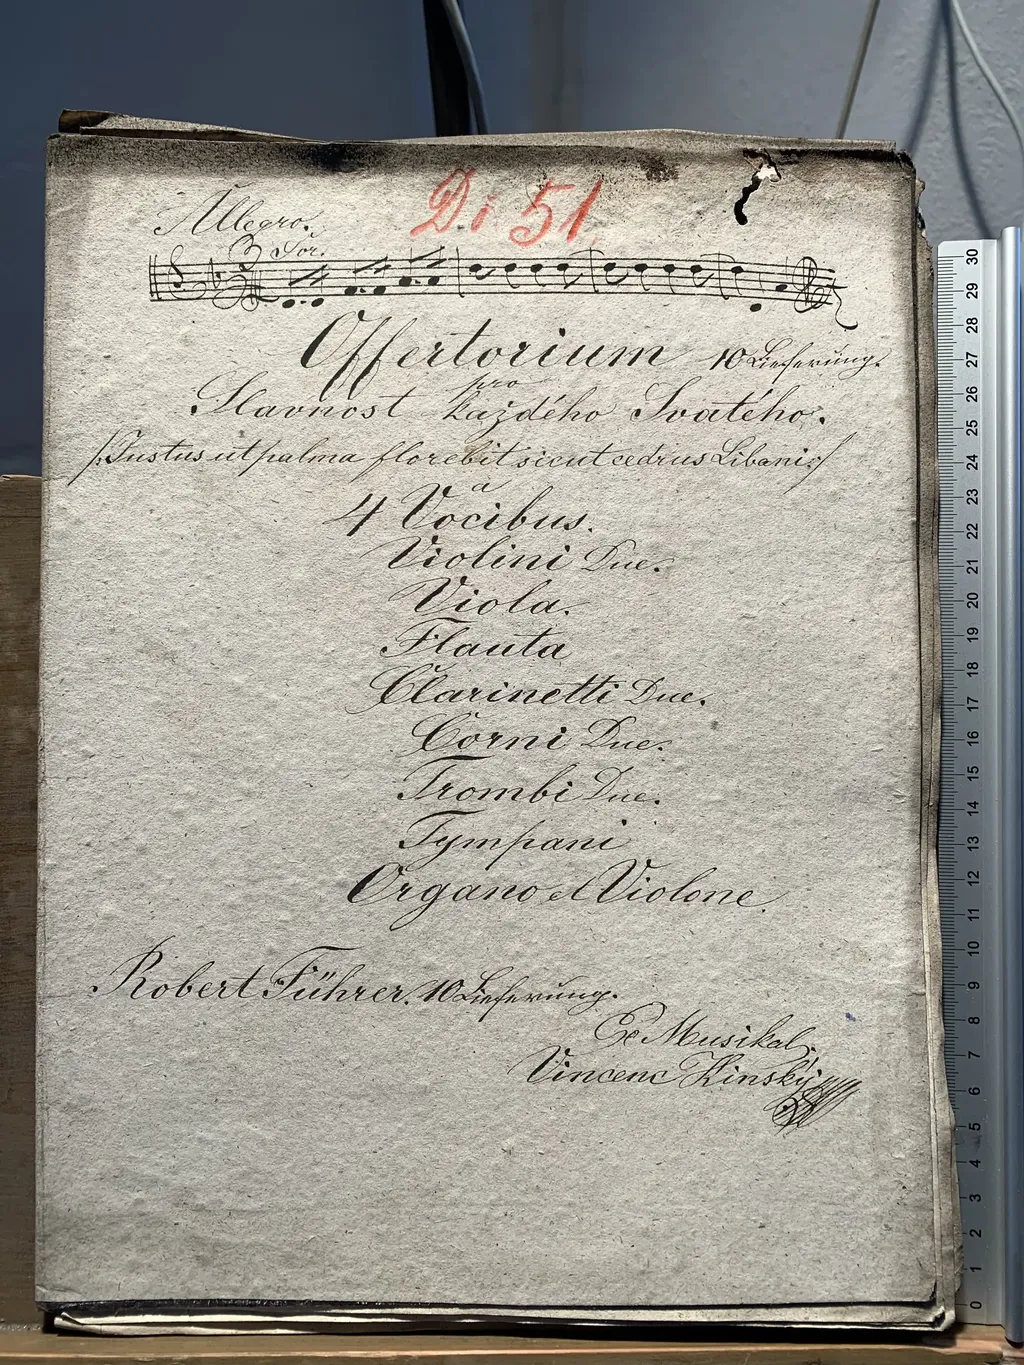 Di 51.
Allegro.
For.
Offertorium 10 Lieferung.
pro
Slavnost každého Svatého.
/:Justus ut palma florebit sicut cedrus Libani:/
a
4 Vocibus.
Violini Due.
Viola.
Flauta
Clarinetti Due.
Corni Due.
Trombi Due.
Tympani
Organo et Violone.
Robert Führer. 10 Lieferung.
Ex Musikal.
Vincenc Kinský
30
29
28
27
26
25
24
23
22
21
20
19
18
17
16
15
14
13
12
11
10
9
8
7
6
5
4
3
2
1
0